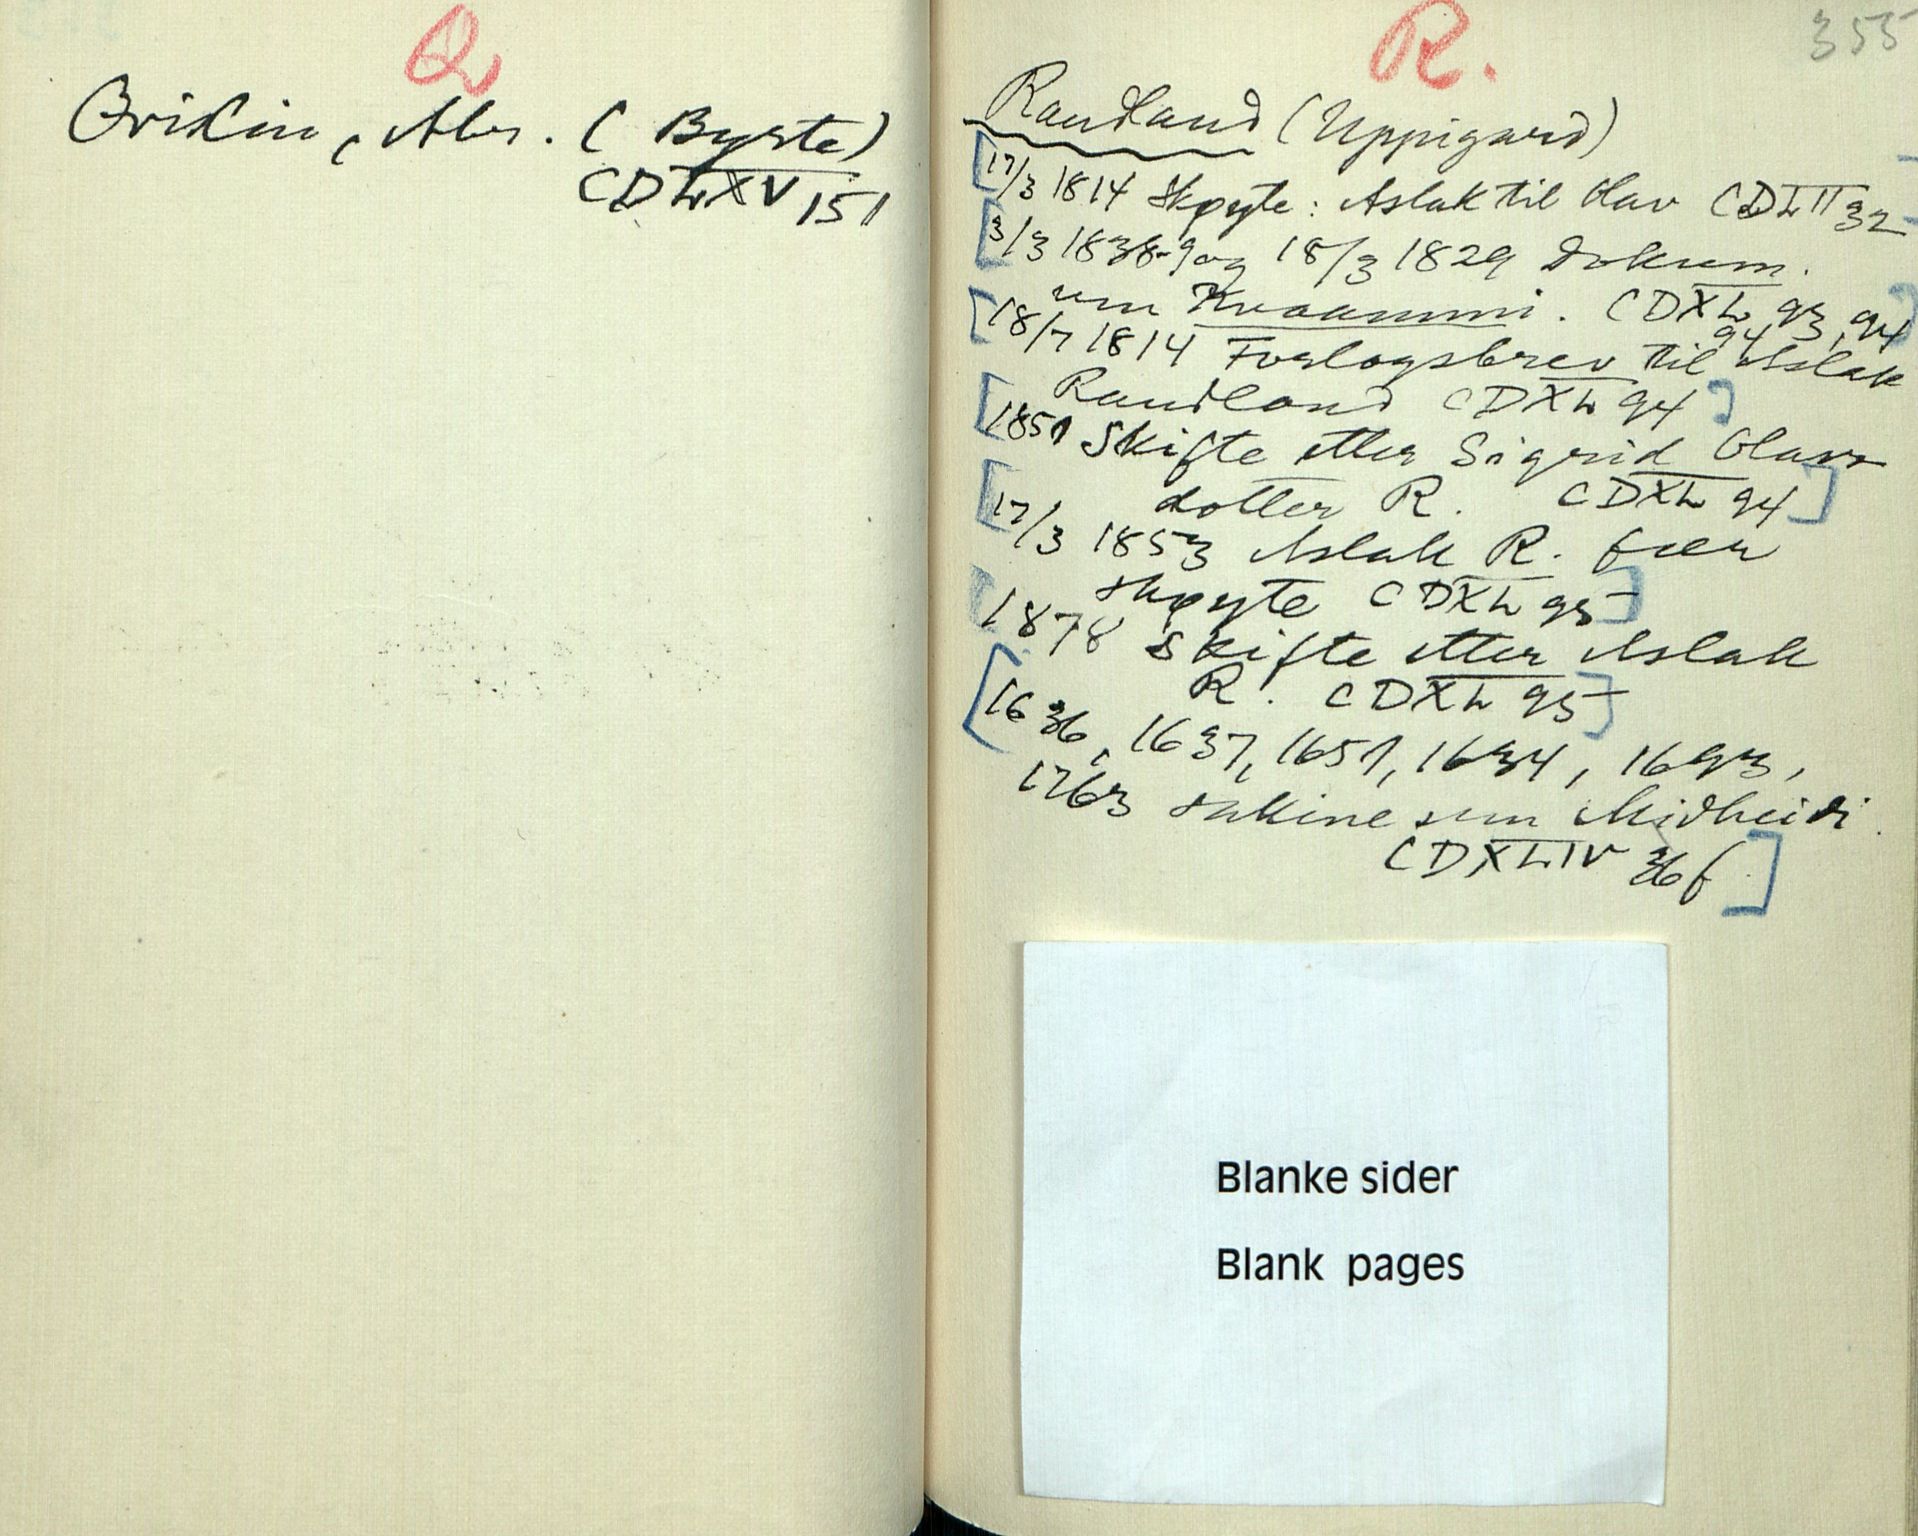 Q
Qvislin, Abr. (Byrte)
CDLXV 151
R.
355
Raudland (Uppigard)
[17/3 1814 Skøyte: Aslak til Olav CDLII 32]
[3/3 1838-9 og 18/3 1829 Dokum.
um Kvaammi. CDXL 93, 94]
94
[18/7 1814 Forlogsbrev til Aslak
Raudland CDXL 94]
[1851 Skifte etter Sigrid Olavs
dotter R. CDXL 94]
[17/3 1853 Aslak R. fær
skøyte CDXL 95]
[1878 Skifte etter Aslak
R. CDXL 95]
[1636, 1637, 1651, 1634, 1693,
1763 sakine um Midheidi.
CDXLIV 36 f]
Blanke sider
Blank pages